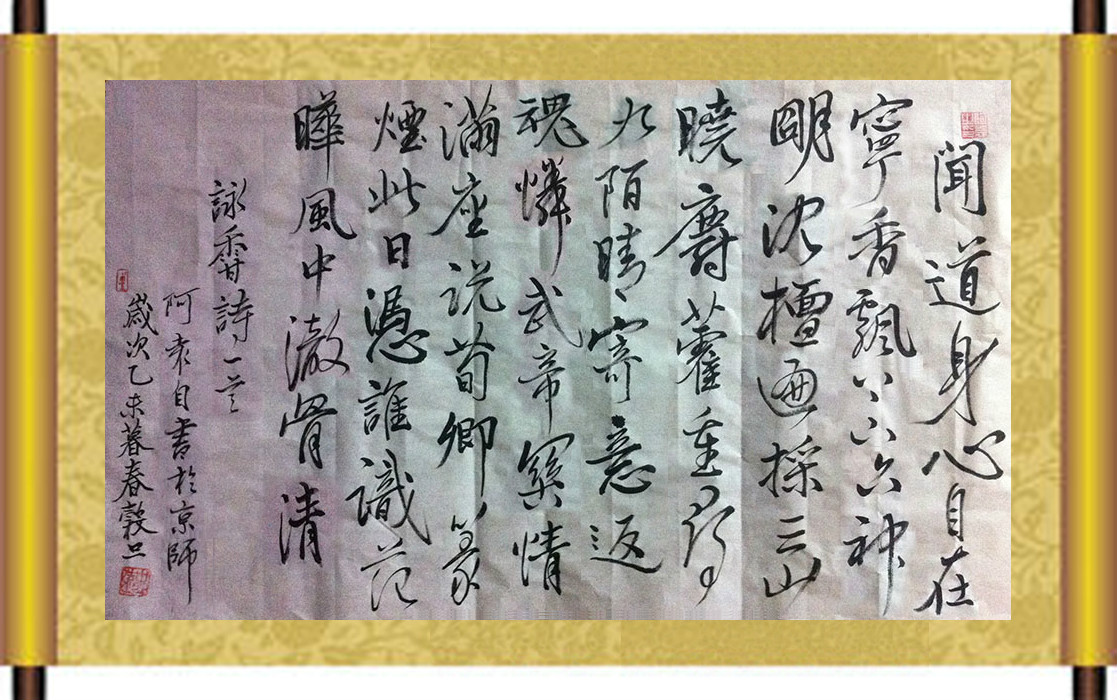 聞道身心自在
寧香飄六神
明沈檀遍採三山
曉麝藿重尋
九陌晴寄意返
魂憐武帝關情
滿座説荀卿篆
煙此日憑誰識范
曄風中澈骨清
詠香詩一首
阿袁自書於京師
歲次乙未暮春穀旦